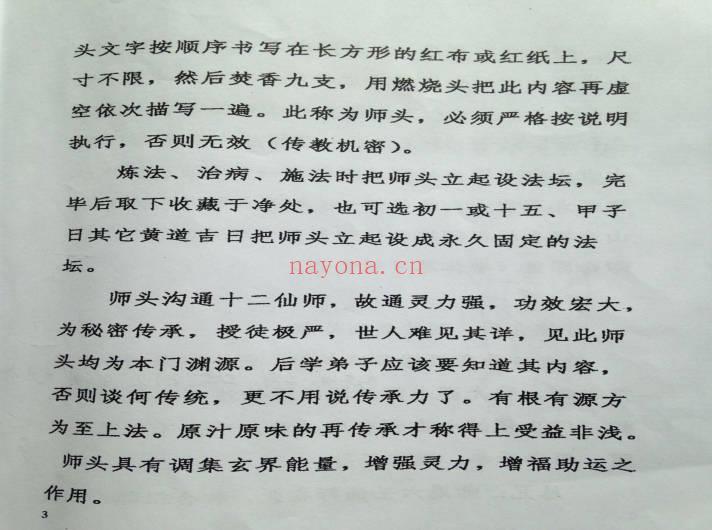 头文字按顺序书写在长方形的红布或红纸上，尺
寸不限，然后焚香九支，用燃烧头把此内容再虚
空依次描写一遍。此称为师头，必须严格按说明
执行，否则无效（传教机密）。
炼法、治病、施法时把师头立起设法坛，完
毕后取下收藏于净处，也可选初一或十五、甲子
日其它黄道吉日把师头立起设成永久固定的法
坛。
nayona.cn
师头沟通十二仙师，故通灵力强，功效宏大，
为秘密传承，授徒极严，世人难见其详，见此师
头均为本门渊源。后学弟子应该要知道其内容，
否则谈何传统，更不用说传承力了。有根有源方
为至上法。原汁原味的再传承才称得上受益非浅。
师头具有调集玄界能量，增强灵力，增福助运之
作用。
3